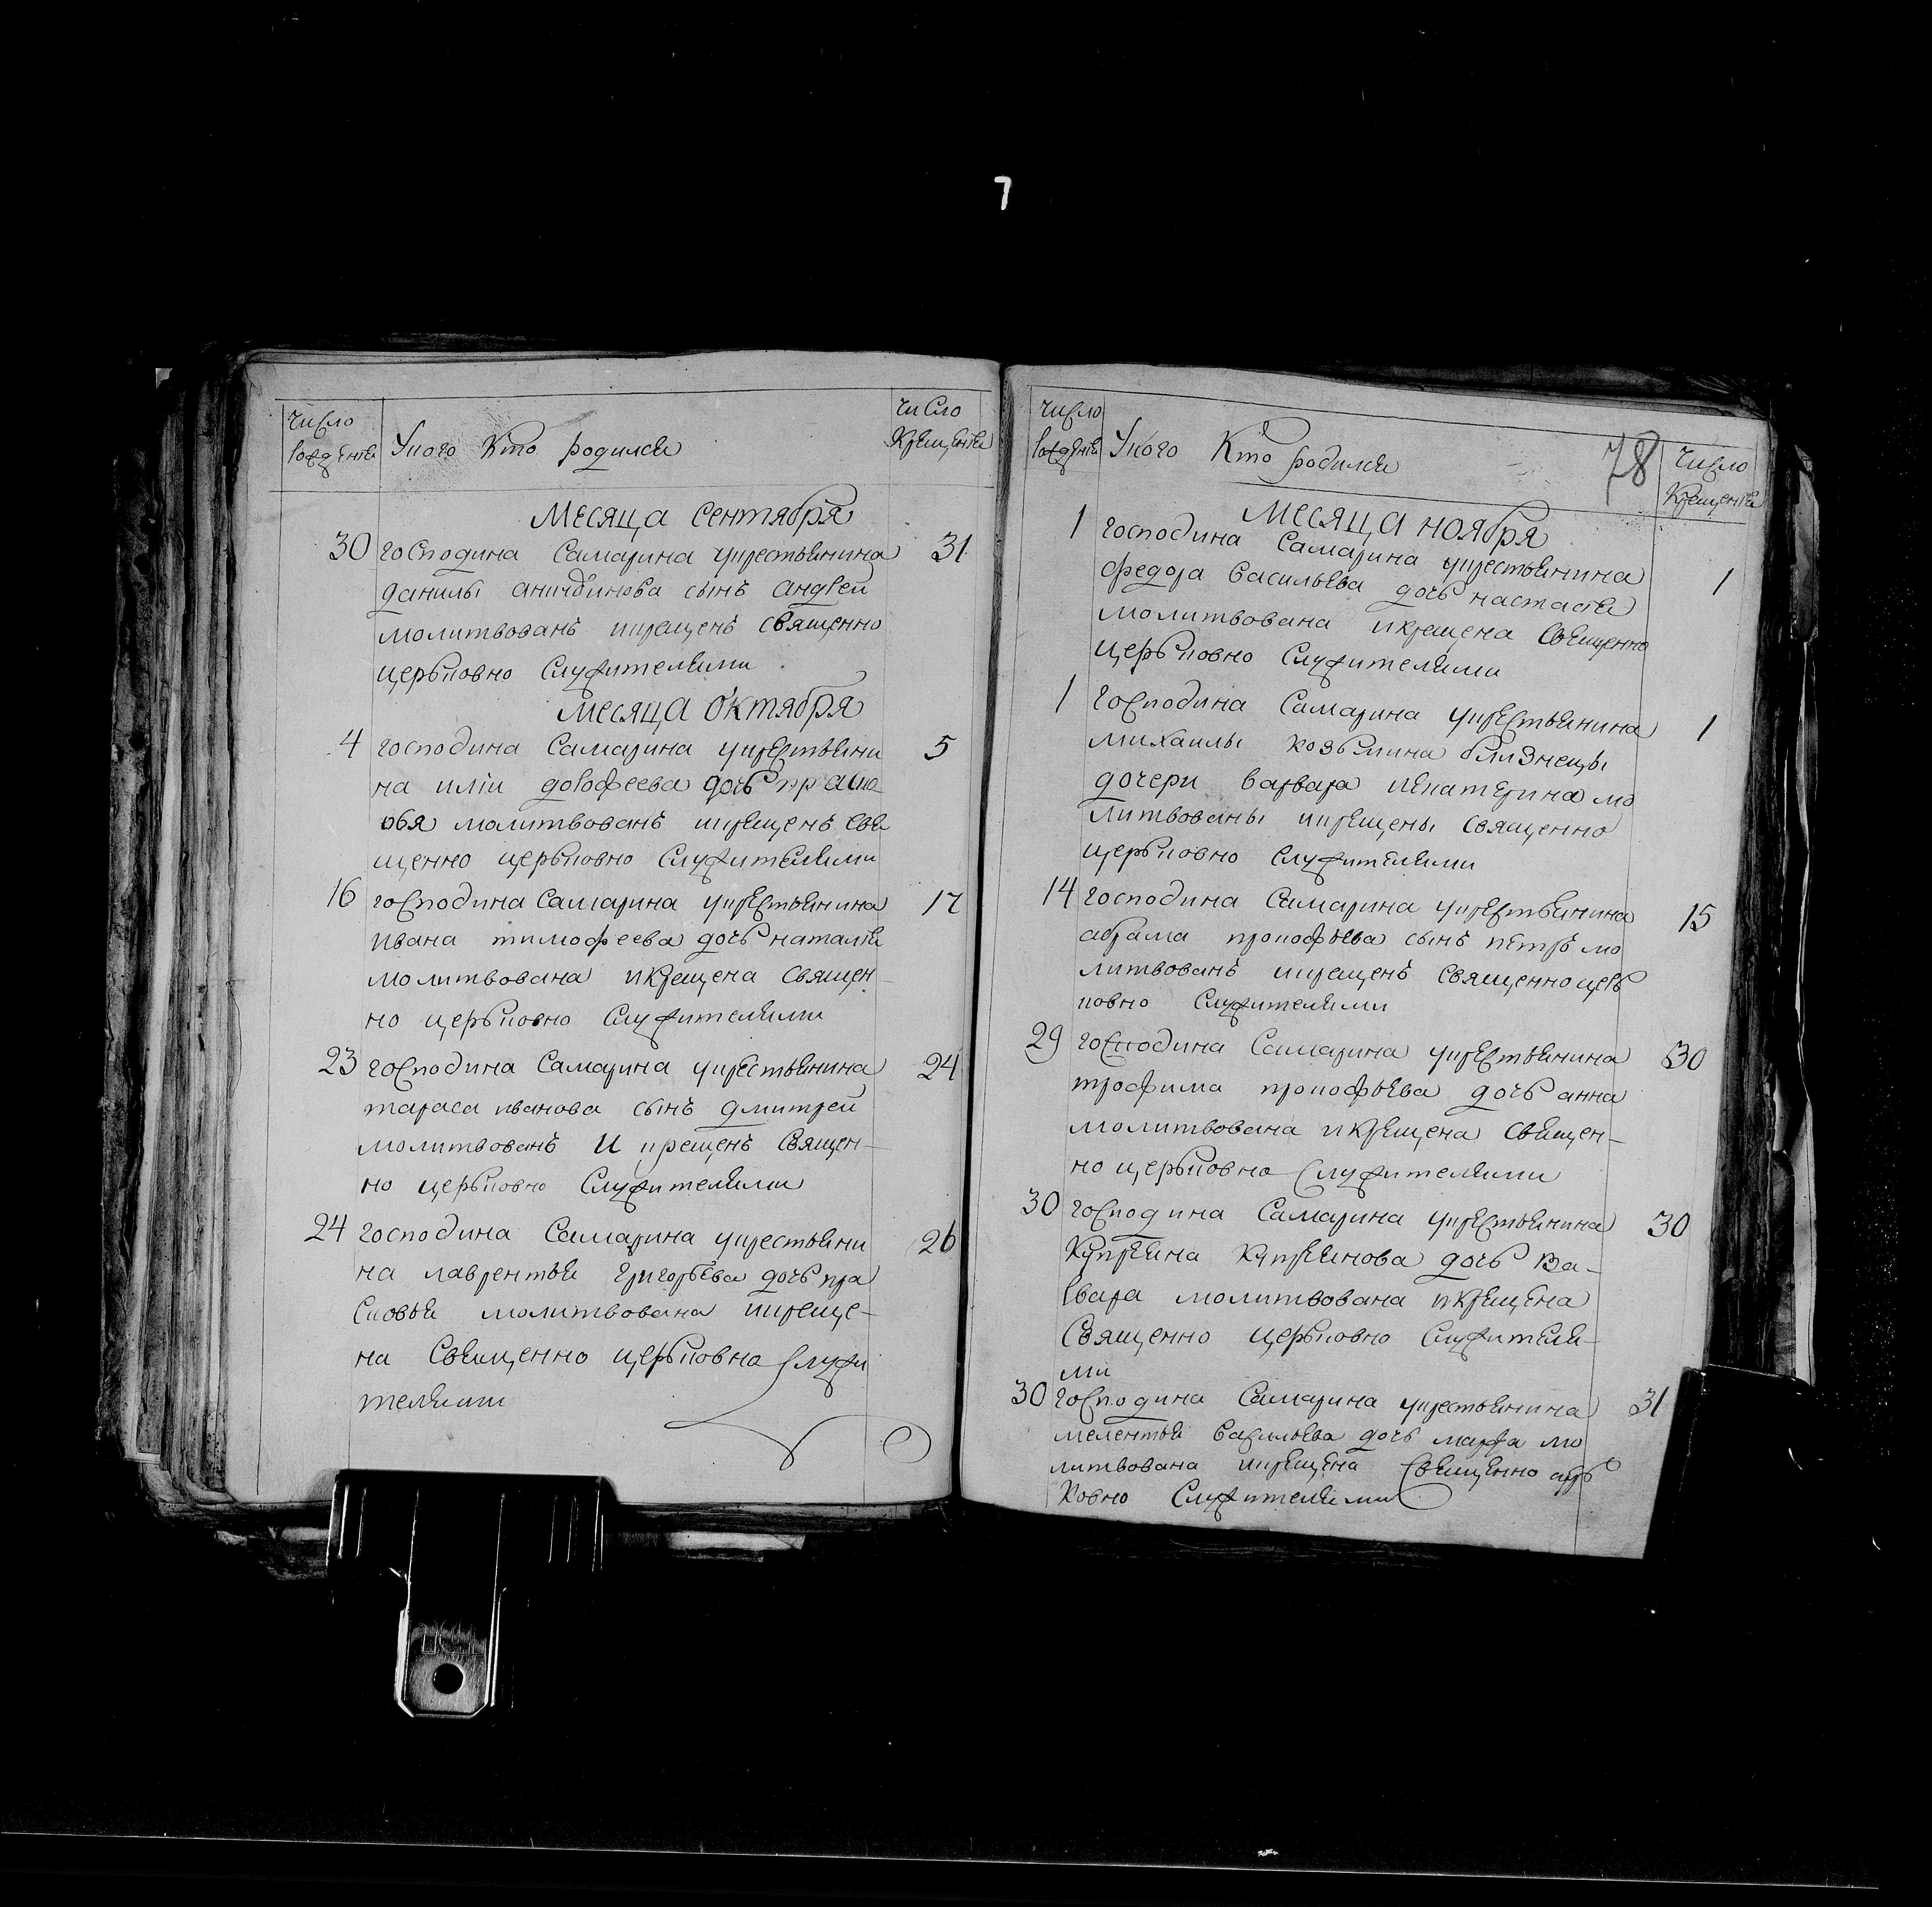 7
число рожденiя
Укого Кто родился
число Крещенiя
месяца сентября
30 господина Самарина укрестьянина 31
данилы сынъ андреи
молитвованъ икрещенъ священно
церьковно служителями
месяца октября
4 господина Самарина укрестьяни 5
на илiи дорофеева дочь праско
овя молитвованъ икрещенъ свя
щенно церьковно служителями
16 господина Самарина укрестьянина 17
ивана тимофеева дочь наталiя
молитвована икрещена священ
но церьковно служителями
23 господина Самарина укрестьянина 24
тараса иванова сынъ дмитреи
молитвованъ и крещенъ Священ-
но церьковно служителями
24 господина Самарина укрестьяни 26
на лаврентья григорьева дочь пра
сковья молитвована икреще-
на священно церьковно служи
телями
78
число рожденiя
Укого Кто родился
число Крещенiя
месяца ноября
1 господина Самарина укрестьянина 1
федора васильева дочь настасiя
молитвована икрещена священно
церьковно служителями
1 господина Самарина укрестьянина 1
михаилы козьмина близнецы
дочери варвара икатерина мо
литвованы икрещены священно
церьковно служителями
14 господина Самарина укрестьянина 15
абрама прокофьева сынъ петръ мо
литвованъ икрещенъ священноцерь
ковно служителями
29 господина Самарина укрестьянина 30
трофима прокофьева дочь анна
молитвована икрещена священ-
но церьковно служителями
30 господина Самарина укрестьянина 30
Купреяна Купреянова дочь Ва-
рвара молитвована икрещена
Священно церьковно служителя-
ми
30 господина Самарина укрестьянина 31
мелентья васильева дочь марфа мо
литвована икрещена священно церь
ковно служителями